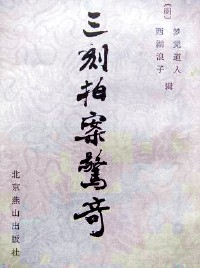 [明]
梦觉道人
西湖浪子 辑
三刻拍案惊奇
北京燕山出版社